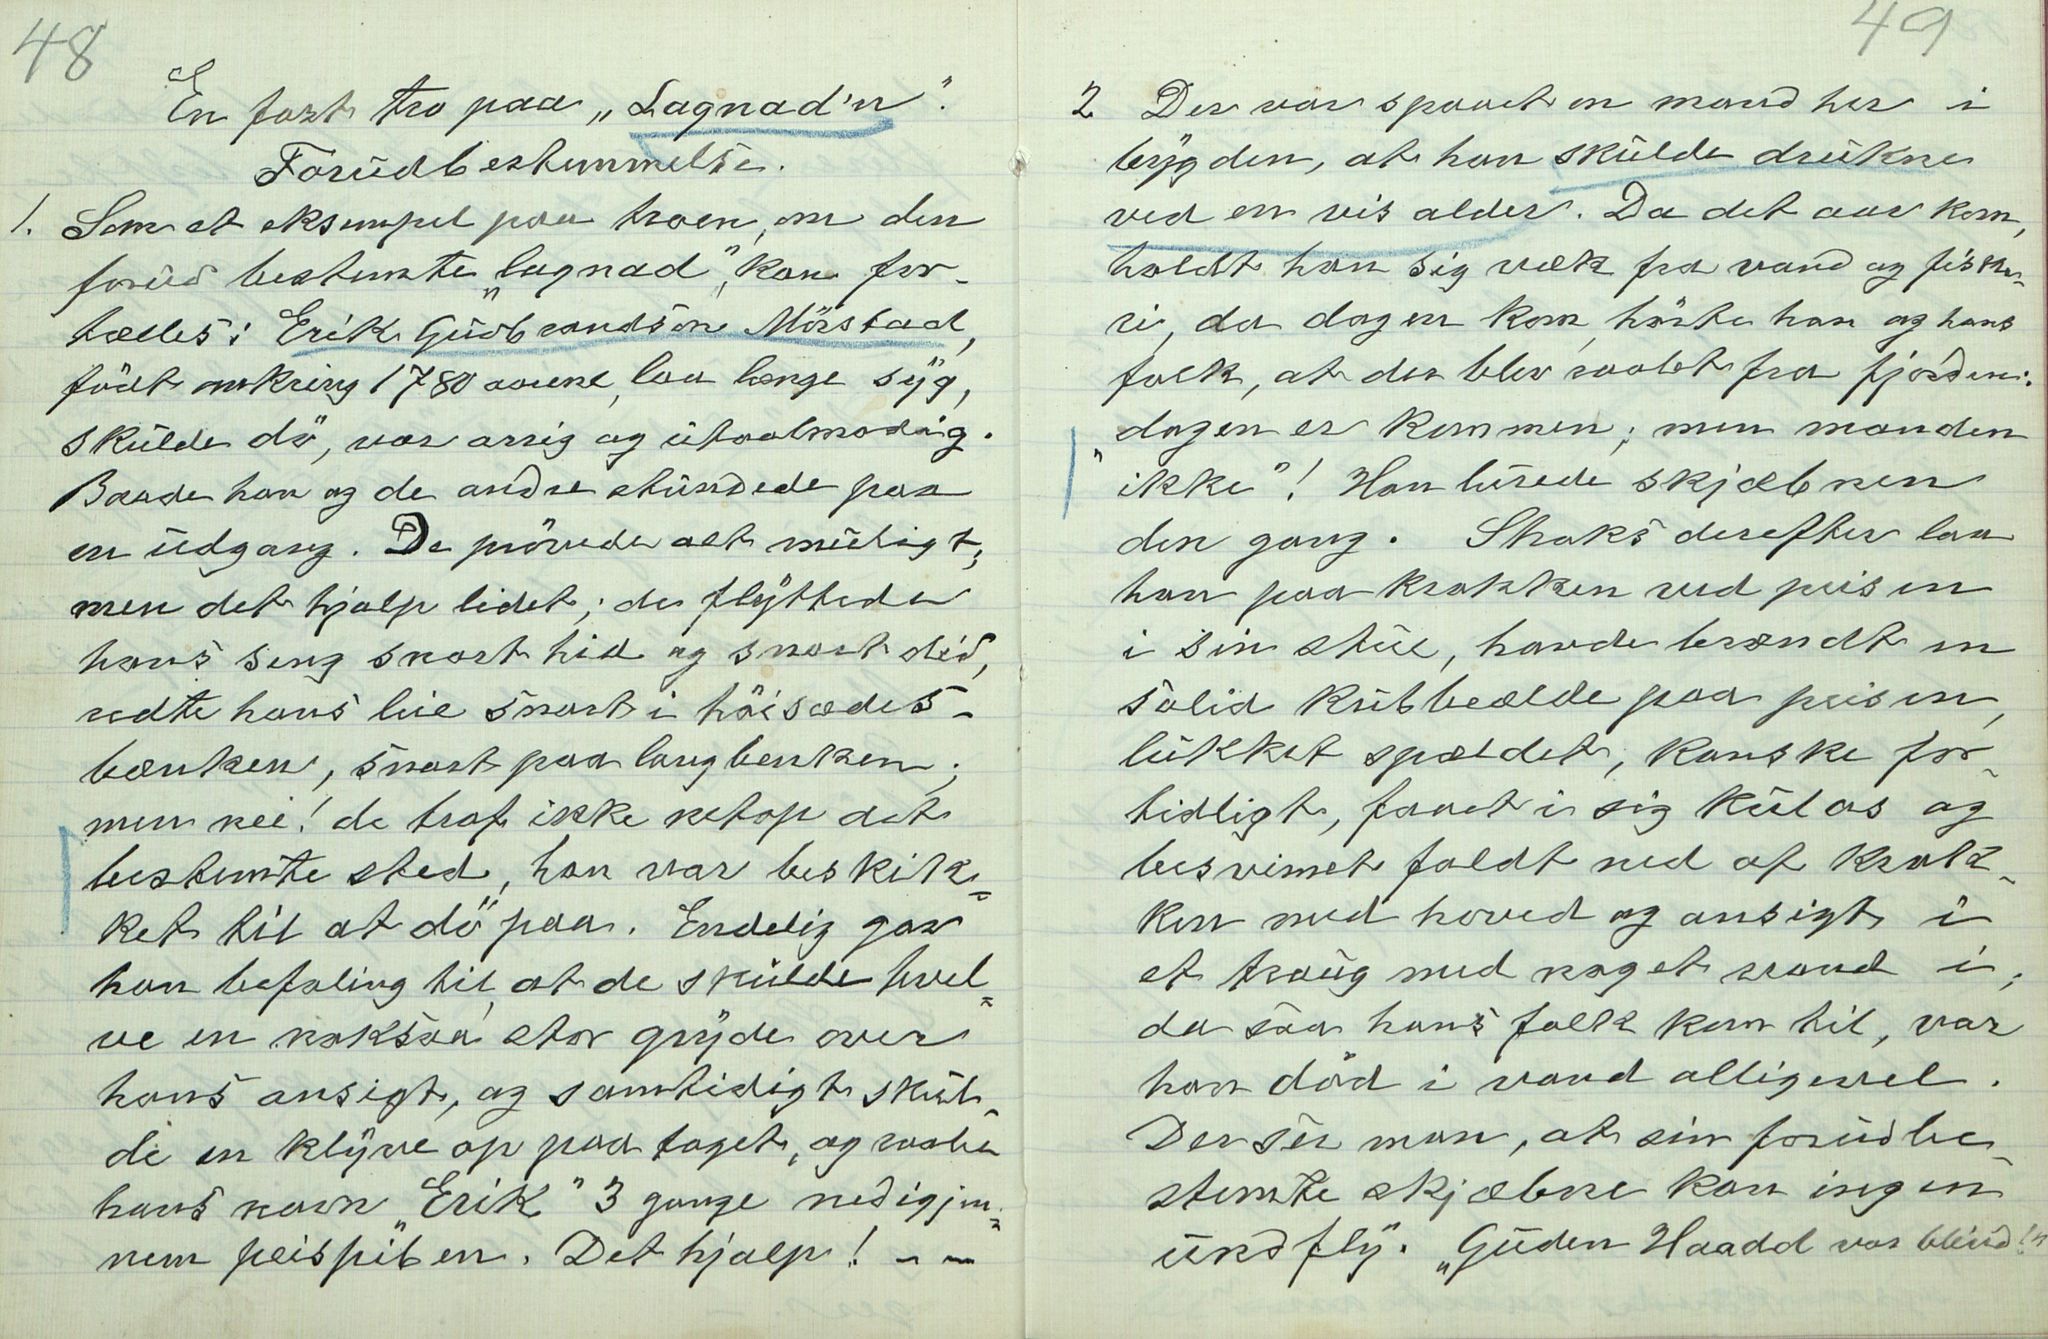 48
En fast tro paa „Lagnad'n".
Forudbestemmelse.
1. Som et eksempel paa troen, om den
forud bestemte „lagnad", kan for-
tælles: Erik Gudbrandsøn Mörstad,
födt omkring 1780 aarene, laa længe syg,
skulde dö, var arrig og utaalmodig.
Baade han og de andre stundede paa
en udgang. De prövede alt muligt,
men det hjalp lidet; de flyttede
hans seng snart hid og snart did,
redte hans leie snart i höisædes-
bænken, snart paa langbenken;
men nei! de traf ikke netop det
bestemte sted, han var beskik-
ket til at dö paa. Endelig gav
han befaling til, at de skulde hvel-
ve en noksaa stor gryde over
hans ansigt, og samtidigt skul-
de en klyve op paa taget, og raabe
hans navn „Erik" 3 gange nedigjen-
nem peispiben. Det hjalp! – –
49
2 Der var spaaet en mand her i
bygden, at han skulde drukne
ved en vis alder. Da det aar kom,
holdt han sig væk fra vand og fiske-
ri, da dagen kom, hörte han og hans
folk, at der blev raabt fra fjorden:
„dagen er kommen; men manden
ikke"! Han lurede skjæbnen
den gang. Straks derefter laa
han paa krakken ved peisen
i sin stue, havde brændt en
solid kubbeælde paa peisen,
lukket spældet, kanske for
tidligt, faaet i sig kulos og
besvimet faldt ned af krak-
ken med hoved og ansigt i
et traug med noget vand i;
da saa hans folk kom til, var
han död i vand alligevel.
Der ser man, at sin forudbe-
stemte skjæbne kan ingen
undfly. „Guden Haadd var blind!"